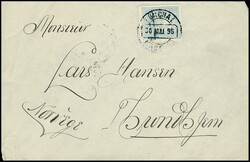 30 MAI 95
Monsieur
Lars Hansen
Norvège
Trondhjem